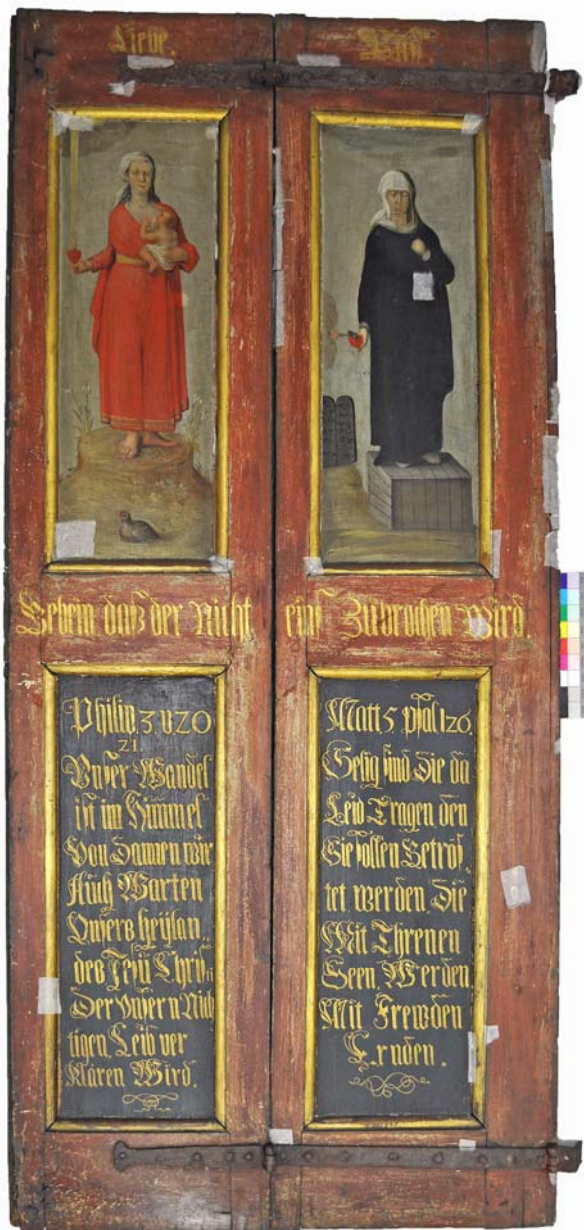 Liebe.
Buß.
Gebein daß der Nicht eins Zubrochen Wird.
Philip. 3. v 20
21.
Vnser Wandel
ist im Himmel
Von Dannen wir
Auch Warten
Vnsers heÿlan
des Jesu Christi
Der vnsern Nich
tigen Leib ver
Klären Wird.
Matt 5 psal 126.
Selig sind Die da
Leid Tragen den
Sie sollen Getrös
tet werden. Die
Mit Threnen
Seen. Werden
Mit Frewden
Ernden.